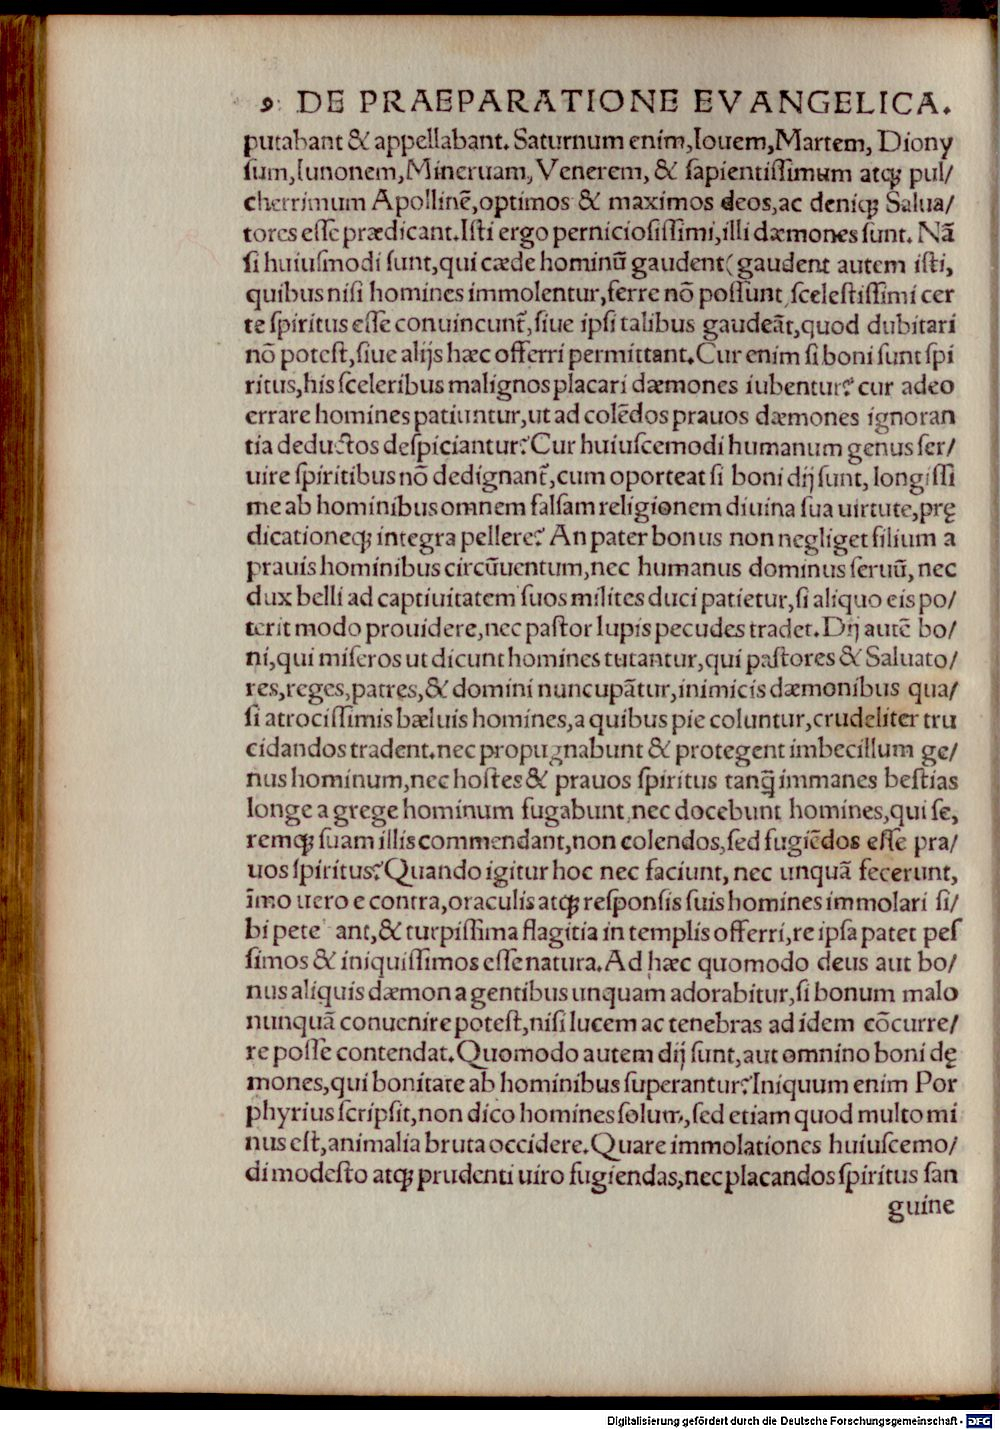 9 DE PRAEPARATIONE EVANGELICA.
putabant & appellabant. Saturnum enim, Iouem, Martem, Diony
ſum, Iunonem, Mineruam, Venerem, & ſapientiſſimum atqꝫ pul/
cherrimum Apollinē, optimos & maximos deos, ac deniqꝫ Salua/
tores eſſe prædicant. Iſti ergo perniciosiſſimi, illi dæmones ſunt. Nā
ſi huiuſmodi ſunt, qui cæde hominū gaudent (gaudent autem iſti,
quibus niſi homines immolentur, ferre nō poſſunt, ſceleſtiſſimi cer
te ſpiritus eſſe conuincunt᷑, ſiue ipſi talibus gaudeāt, quod dubitari
nō poteſt, ſiue alijs hæc offerri permittant. Cur enim ſi boni ſunt ſpi
ritus, his ſceleribus malignos placari dæmones iubentur? cur adeo
errare homines patiuntur, ut ad colēdos prauos dæmones ignoran
tia deductos deſpiciantur? Cur huiuſcemodi humanum genus ſer/
uire ſpiritibus nō dedignant᷑, cum oporteat ſi boni dij ſunt, longiſſi
me ab hominibus omnem falſam religionem diuina ſua uirtute, prę
dicationeqꝫ integra pellere? An pater bonus non negliget filium a
prauis hominibus circūuentum, nec humanus dominus ſeruū, nec
dux belli ad captiuitatem ſuos milites duci patietur, ſi aliquo eis po/
terit modo prouidere, nec paſtor lupis pecudes tradet. Dij autē bo/
ni, qui miſeros ut dicunt homines tutantur, qui paſtores & Saluato/
res, reges, patres, & domini nuncupātur, inimicis dæmonibus qua/
ſi atrociſſimis bæluis homines, a quibus pie coluntur, crudeliter tru
cidandos tradent. nec propugnabunt & protegent imbecillum ge/
nus hominum, nec hoſtes & prauos ſpiritus tanq̄ immanes beſtias
longe a grege hominum fugabunt, nec docebunt homines, qui ſe,
remqꝫ ſuam illis commendant, non colendos, ſed fugiēdos eſſe pra/
uos ſpiritus? Quando igitur hoc nec faciunt, nec unquā fecerunt,
īmo uero e contra, oraculis atqꝫ reſponſis ſuis homines immolari ſi/
bi pete ant, & turpiſſima flagitia in templis offerri, re ipſa patet peſ
ſimos & iniquiſſimos eſſe natura. Ad hæc quomodo deus aut bo/
nus aliquis dæmon a gentibus unquam adorabitur, ſi bonum malo
nunquā conuenire poteſt, niſi lucem ac tenebras ad idem cōcurre/
re poſſe contendat. Quomodo autem dij ſunt, aut omnino boni dę
mones, qui bonitate ab hominibus ſuperantur? Iniquum enim Por
phyrius ſcripſit, non dico homines ſolum, ſed etiam quod multo mi
nus eſt, animalia bruta occidere. Quare immolationes huiuſcemo/
di modeſto atqꝫ prudenti uiro fugiendas, nec placandos ſpiritus ſan
guine
Digitalisierung gefördert durch die Deutsche Forschungsgemeinschaft - DFG